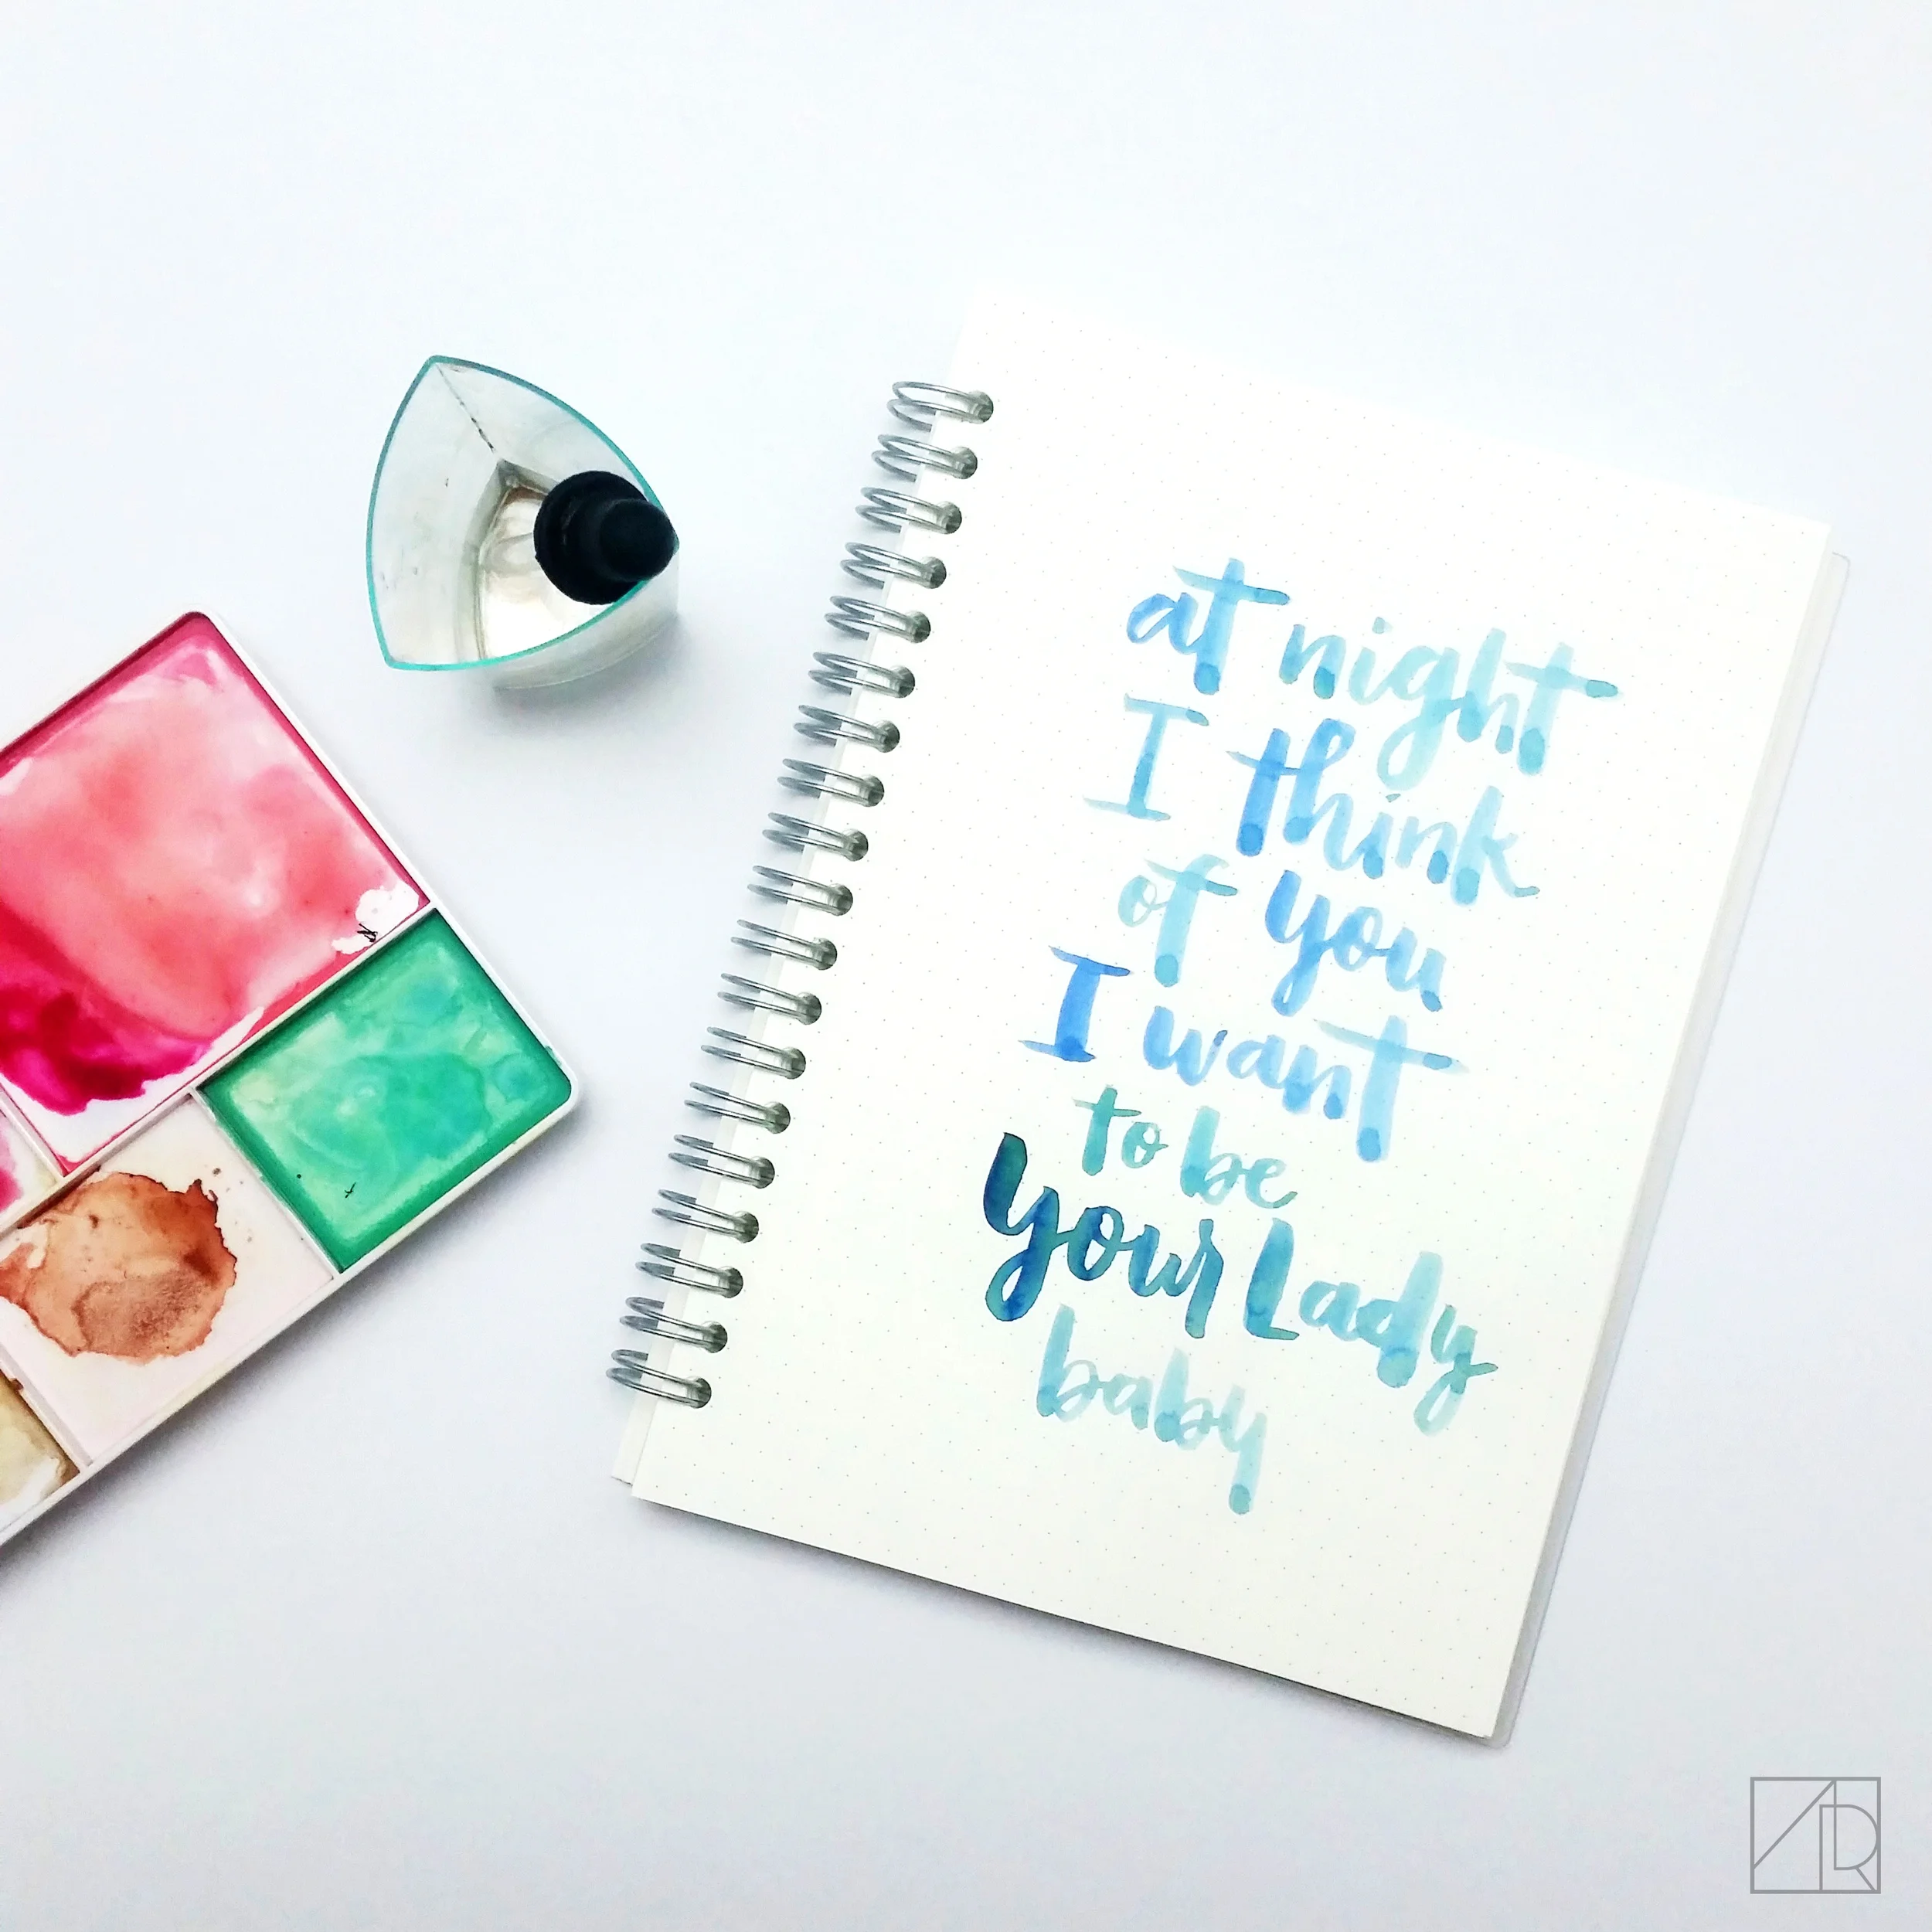 at night
I think
of you
I want
to be
your Lady
baby